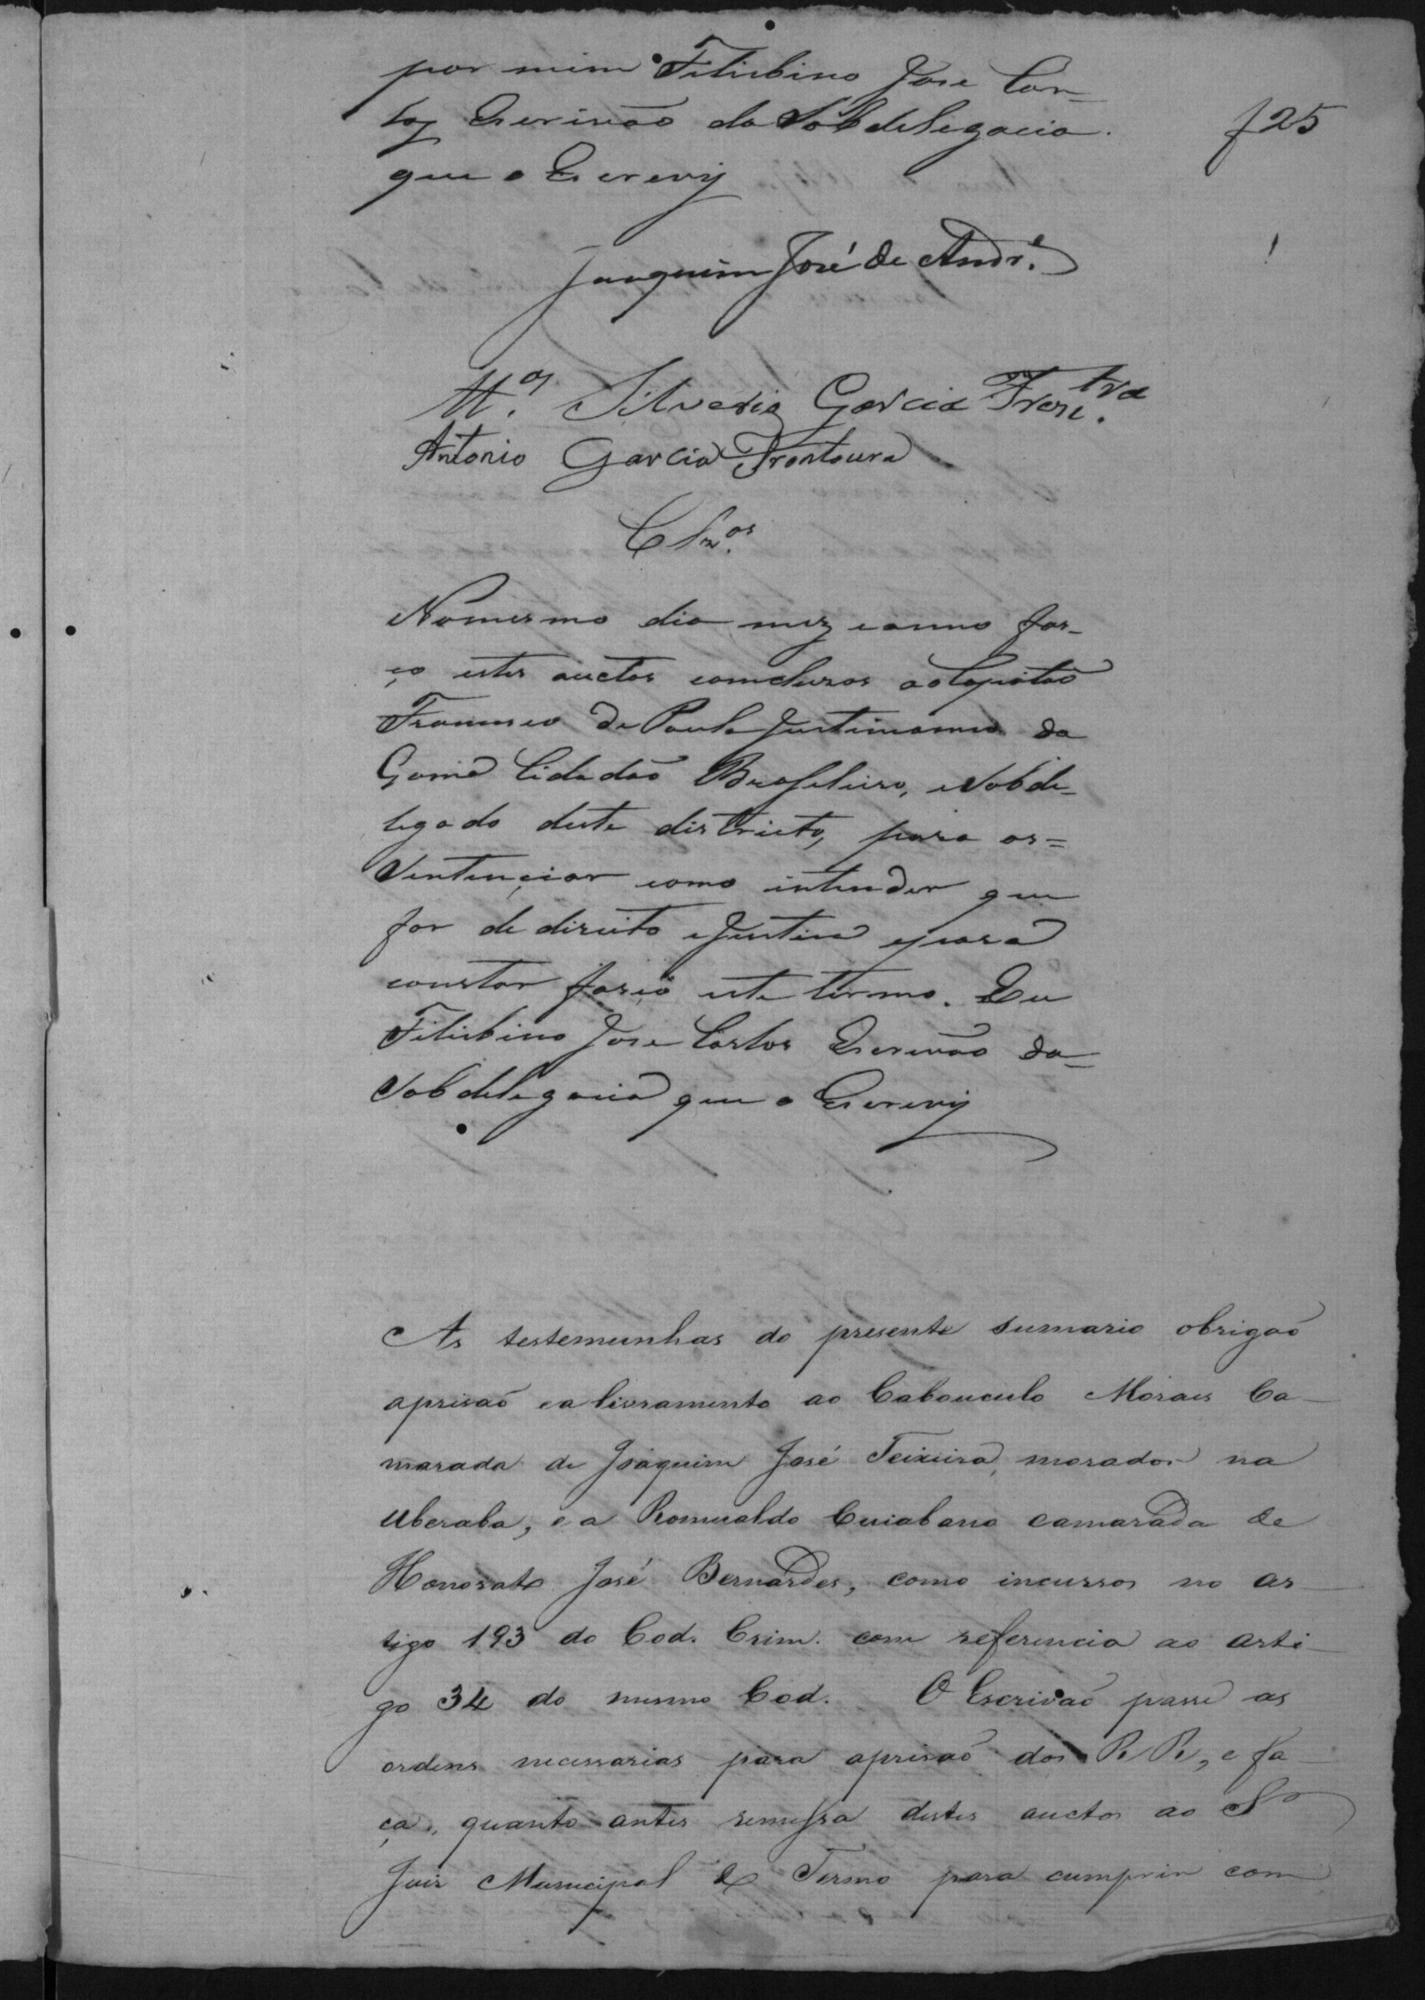 por mim Felisbino Jose Car-
los Escrivão da Sobdelegacia.
f 25
que o Escrevy
Joaquim José de Andr.e
M.el Silverio Garcia Front.ra
Antonio Garcia Frontoura
Clz.os
No mesmo dia mez e anno fas-
ço estes auctos comcluzos ao Capitão
Francisco de Paula Justinianno da
Gama Cidadão Brasileiro, e Sobde-
legado deste districto, para os=
Sentençiar como intender que
for de direito e Justica e para
constar fasço este termo. Eu
Felisbino Jose Carlos Escrivão da-
Sobdelegacia que o Escrevy
As testemunhas do presente sumario obrigaõ
aprisaõ e a livramento ao Cabouculo Moraes Ca-
marada de Joaquim José Teixeira, morador na
Uberaba, e a Romualdo Cuiabano camarada de
Honorato José Bernardes, como incursos no ar-
tigo 193 do Cod. Crim. com referencia ao arti-
go 34 do mesmo Cod. O Escrivaõ passe as
ordens necessarias para aprisaõ dos RR, e fa-
ça, quanto antes remessa destes auctos ao Sr
Juis Municipal do Termo para cumprir com